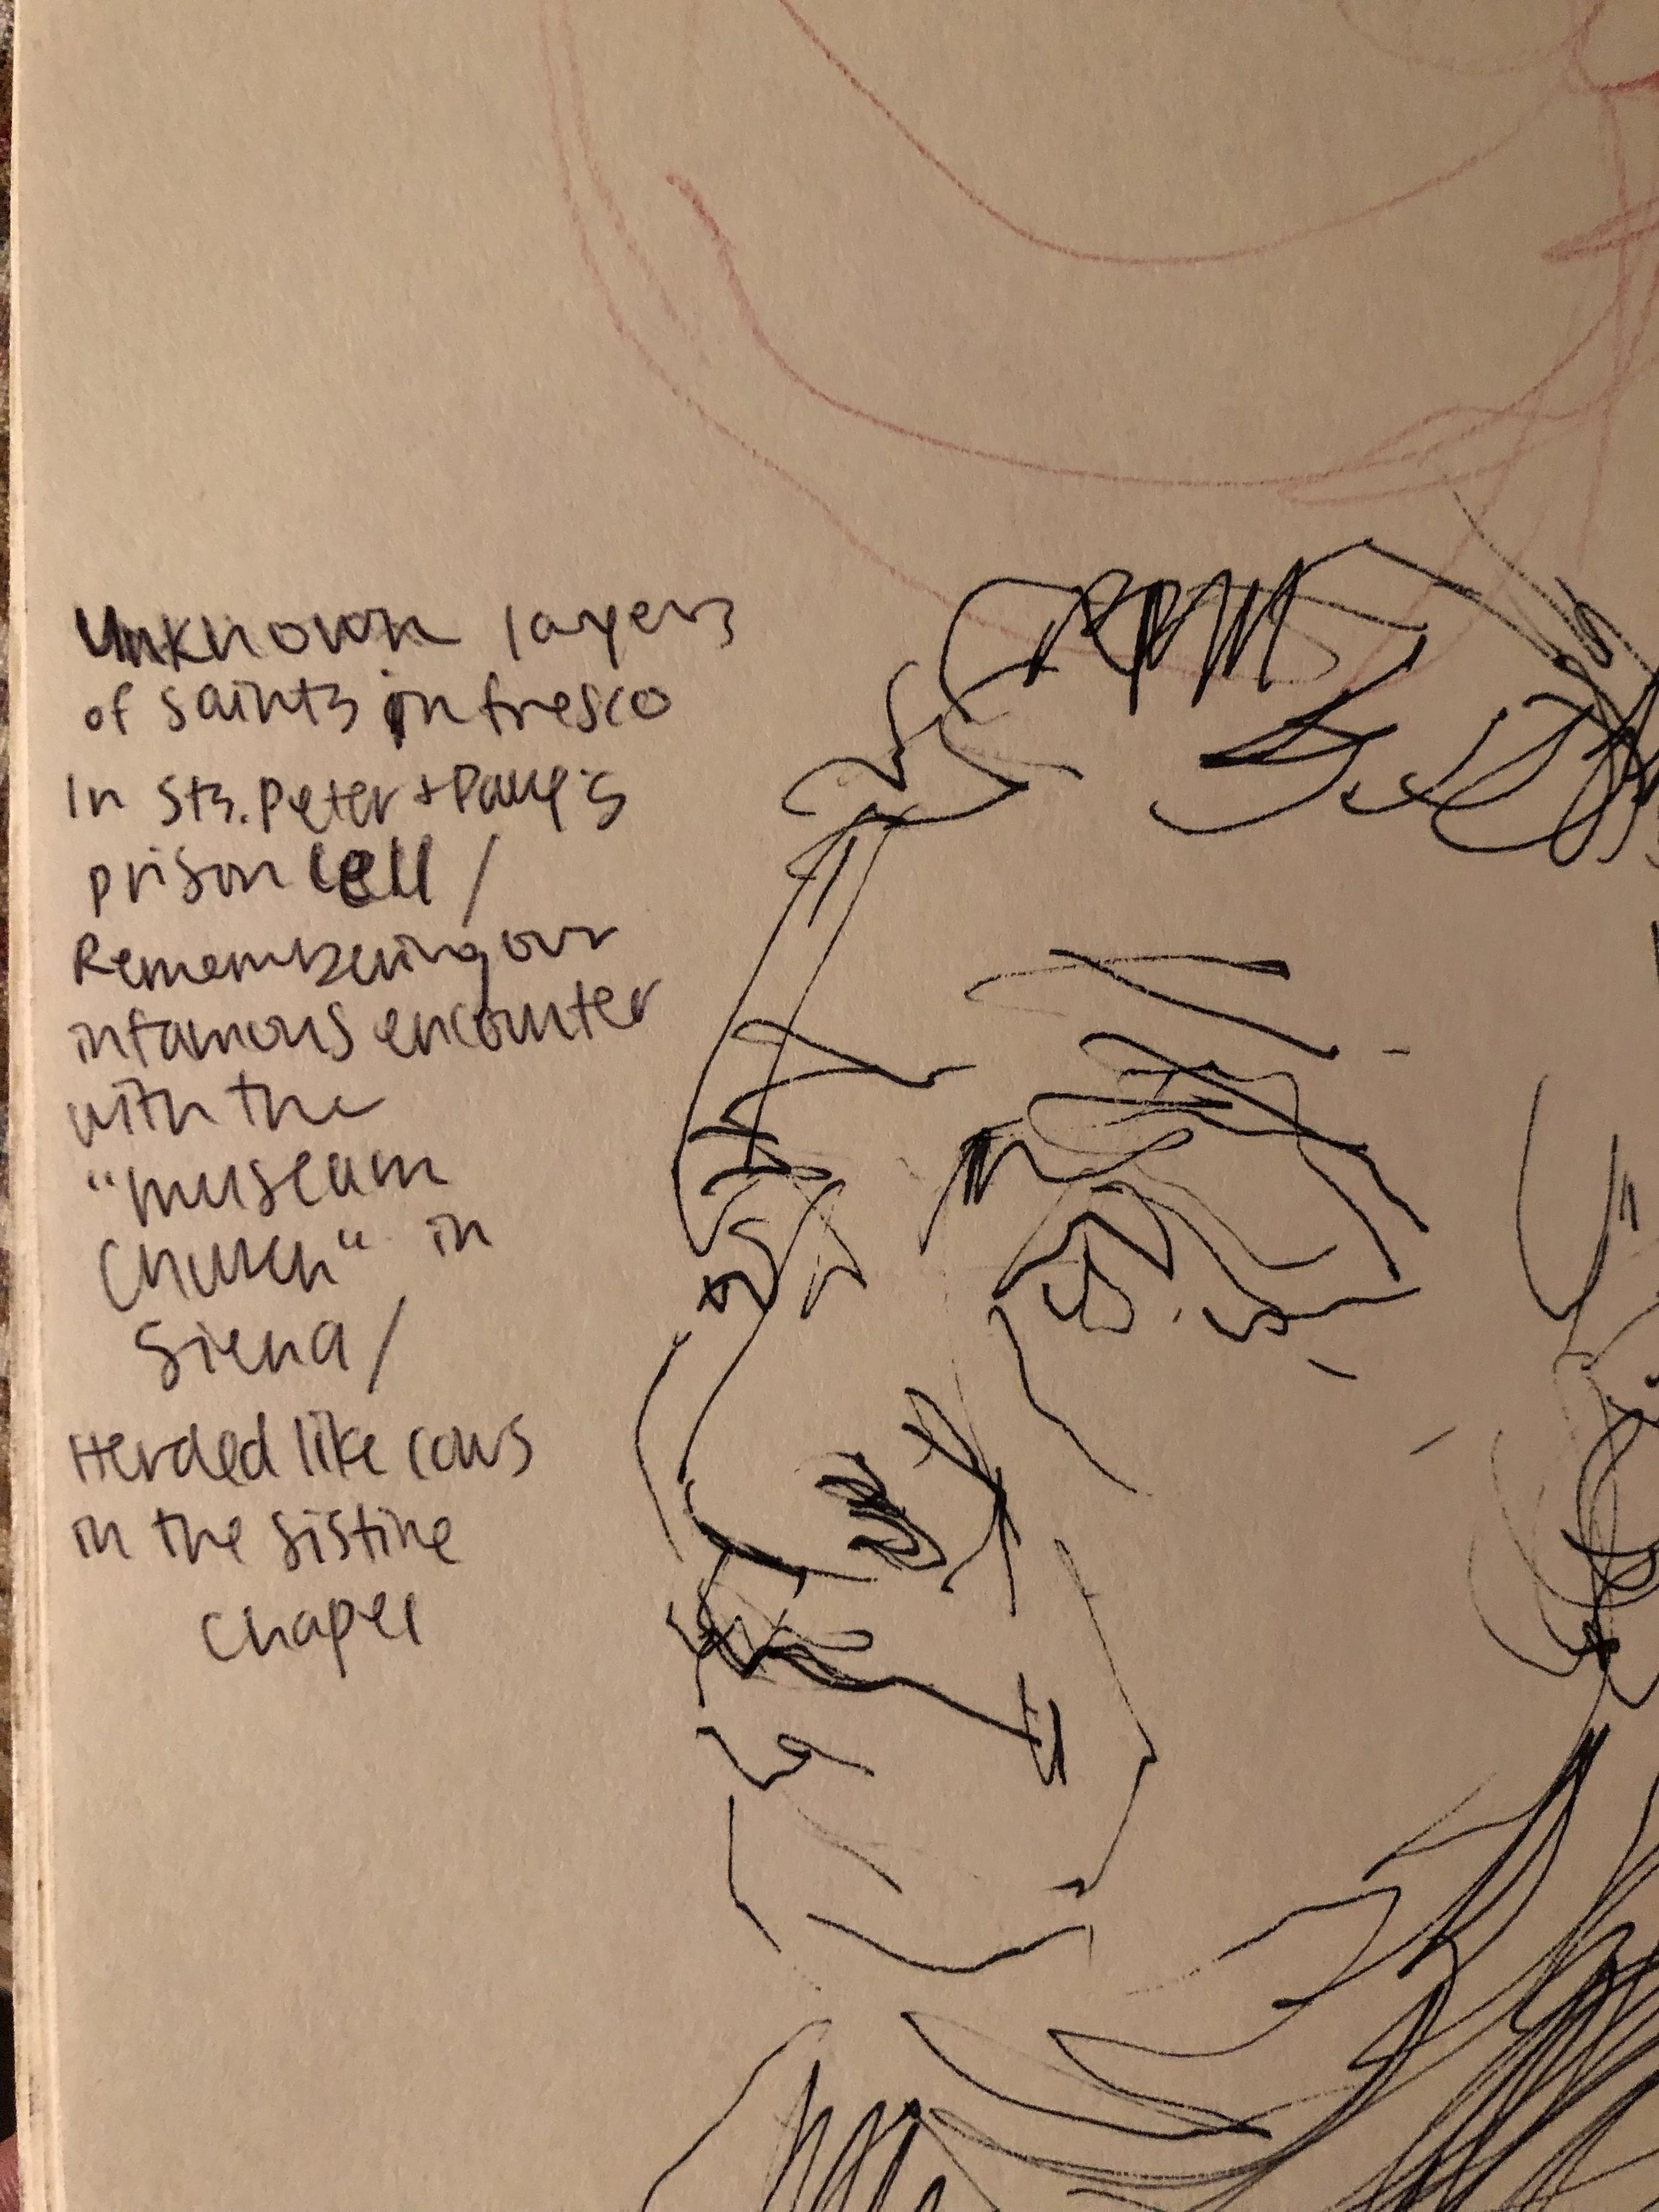 Unknown layers
of saints in fresco
In Sts. Peter + Paul's
prison cell /
Remembering our
infamous encounter
with the
"museum
church" in
Siena /
Herded like cows
in the Sistine
Chapel